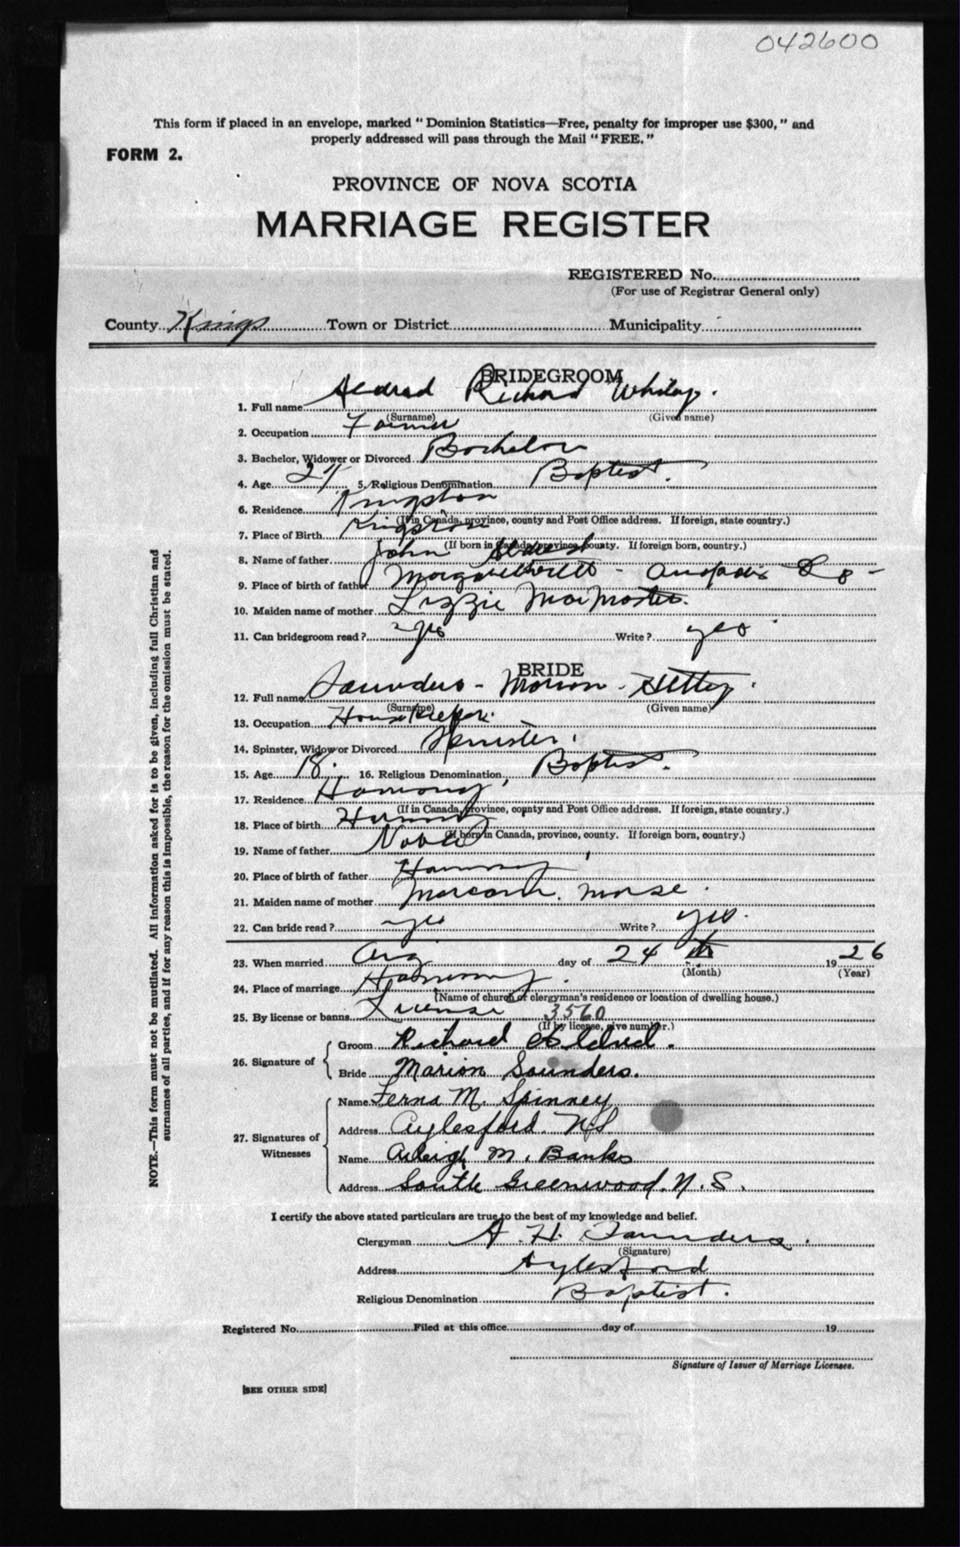 042600
This form if placed in an envelope, marked "Dominion Statistics—Free, penalty for improper use $300," and
properly addressed will pass through the Mail "FREE."
FORM 2.
PROVINCE OF NOVA SCOTIA
MARRIAGE REGISTER
REGISTERED No.
(For use of Registrar General only)
County Kings Town or District Municipality
BRIDEGROOM
1. Full name Richard
(Surname) (Given name)
2. Occupation Farmer
3. Bachelor, Widower or Divorced Bachelor
4. Age 5. Religious Denomination Baptist.
6. Residence Kingston
(If in Canada, province, county and Post Office address. If foreign, state country.)
7. Place of Birth Kingston
(If born in Canada, province, county. If foreign born, country.)
8. Name of father John
9. Place of birth of father
10. Maiden name of mother Lizzie
11. Can bridegroom read? yes Write? yes
BRIDE
12. Full name Saunders - Marion -
(Surname) (Given name)
13. Occupation Housekeeper.
14. Spinster, Widow or Divorced Spinster.
15. Age 18. 16. Religious Denomination Baptist.
17. Residence Harmony
(If in Canada, province, county and Post Office address. If foreign, state country.)
18. Place of birth Harmony
(If born in Canada, province, county. If foreign born, country.)
19. Name of father
20. Place of birth of father Harmony
21. Maiden name of mother Morse.
22. Can bride read? yes Write? yes.
23. When married Aug day of 24 th 1926
(Month) (Year)
24. Place of marriage Harmony.
(Name of church or clergyman's residence or location of dwelling house.)
25. By license or banns License 3560
(If by license, give number.)
26. Signature of
Groom Richard
Bride Marion Saunders.
27. Signatures of Witnesses
Name Ferna M. Spinney
Address Aylesford NS
Name M. Banks
Address South Greenwood. N.S.
I certify the above stated particulars are true to the best of my knowledge and belief.
Clergyman A. H. Saunders.
(Signature)
Address Aylesford
Religious Denomination Baptist.
Registered No. Filed at this office day of 19
Signature of Issuer of Marriage Licenses.
[SEE OTHER SIDE]
NOTE.—This form must not be mutilated. All information asked for is to be given, including full Christian and
surnames of all parties, and if for any reason this is impossible, the reason for the omission must be stated.